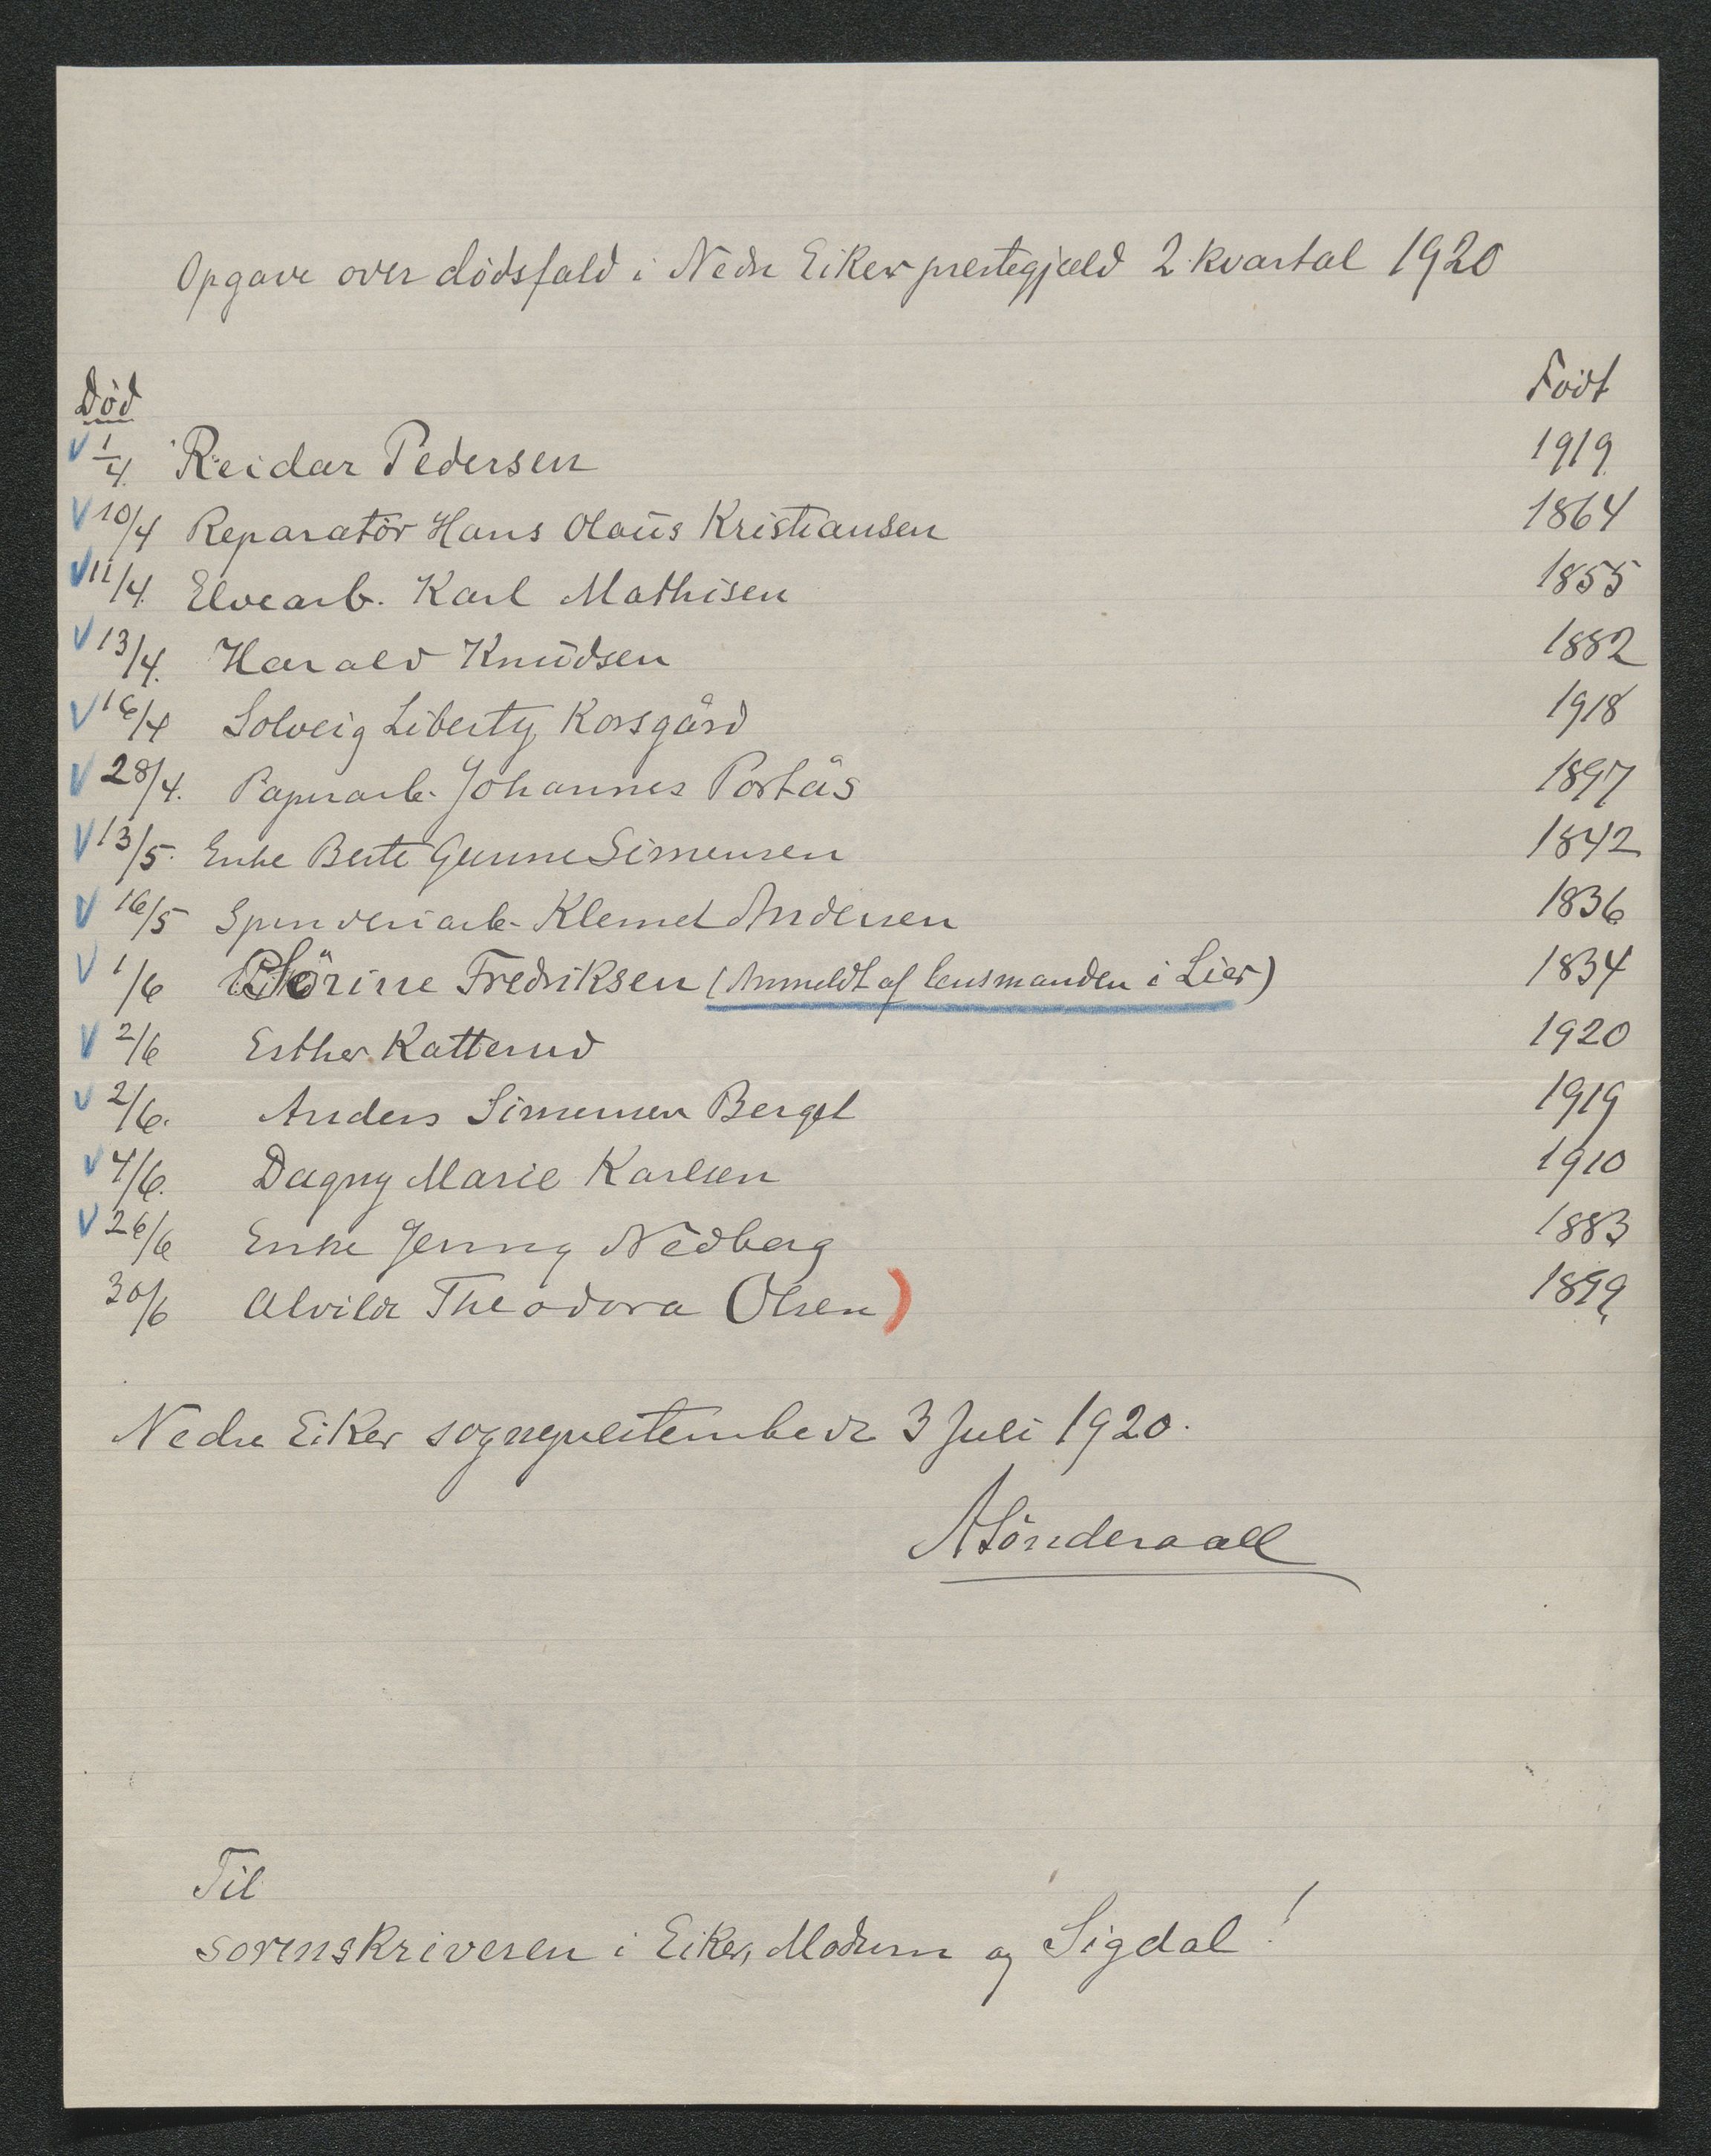 Opgave over dødsfald i Nedre Eiker prestegjæld 2 kvartal 1920
Død Født
V 1/4. Reidar Pedersen 1919
V 10/4 Reparatør Hans Olaus Kristiansen 1864
V 11/4. Elvearb. Karl Mathisen 1855
V 13/4. Harald Knudsen 1882
V 16/4 Solveig Liberty Korsgård 1918
V 28/4. Papirarb. Johannes Portås 1897
V 13/5. Enke Berte Gunne Simensen 1842
V 16/5 Spinderiarb. Klemet Andersen 1836
V 1/6 Sørine Fredriksen (Anmeldt af lensmanden i Lier) 1834
V 2/6 Esther Katterud 1920
V 2/6. Anders Simensen Berget 1919
V 4/6. Dagny Marie Karlsen 1910
V 26/6 Enke Jenny Nedberg 1883
30/6 Alvilde Theodora Olsen) 1899
Nedre Eiker sogneprestembede 3 Juli 1920.
A Sønderaall
Til
sorenskriveren i Eiker, Modum og Sigdal!